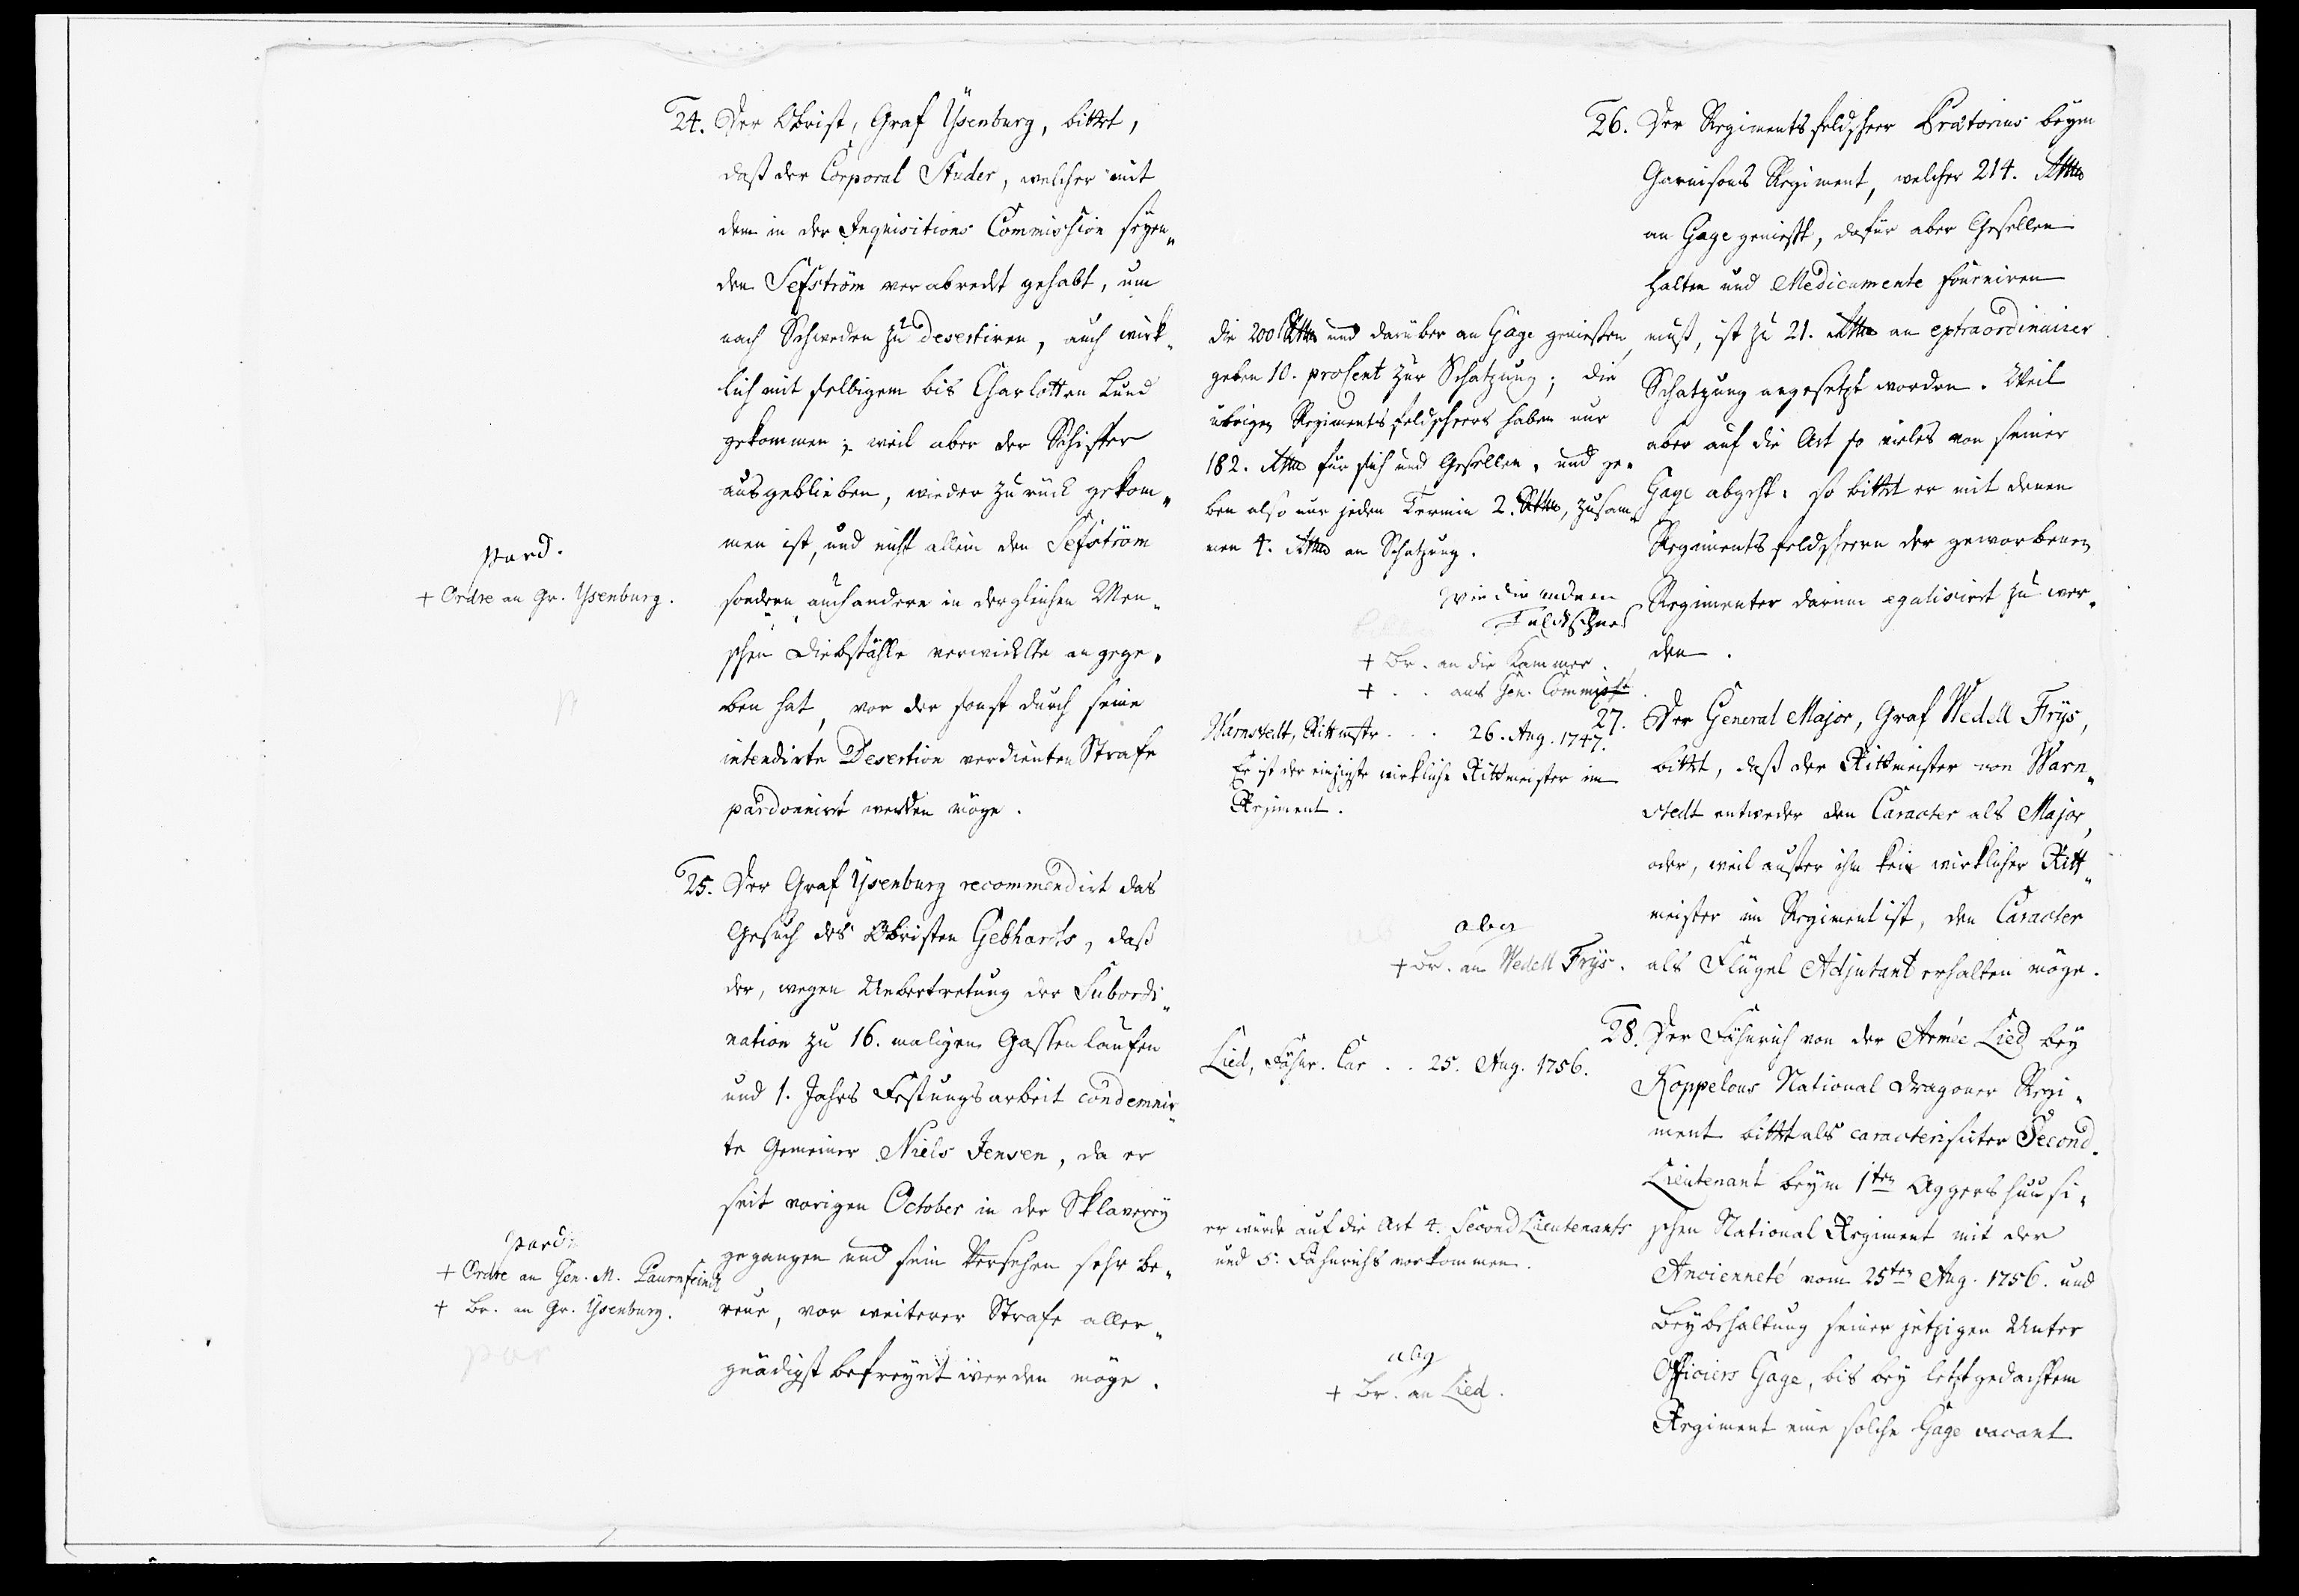 24. Der Obrist, Graf Ysenburg, bittet,
daß der Corporal Studer, welcher mit
dem in der Inquisitions Commission seyen„
den Sefström verabredet gehabt, um
nach Schweden zu desertiren, auch wirk„
lich mit selbigem bis Charlotten Lund
gekommen; weil aber der Schiffer
ausgeblieben, wieder zurück gekom„
men ist, und nicht allein den Sefström
sondern auch andere in dergleichen Men„
schen Diebställe verwickelte angege„
ben hat, vor der sonst durch seine
intendirte Desertion verdienten Strafe
pardonnirt werden möge.
pard.
+ Ordre an Gr. Ysenburg.
25. Der Graf Ysenburg recommendirt das
Gesuch des Obristen Gebhards, daß
der, wegen Uebertretung der Subordi„
nation zu 16. maligem Gassenlaufen
und 1. Jahrs Festungsarbeit condemnir„
te Gemeiner Niels Jensen, da er
seit vorigen October in der Sklaverey
gegangen und sein Versehen sehr be„
reue, vor weiterer Strafe aller„
gnädigst befreyet werden möge.
pard:
+ Ordre an Gen. M. Paurnfeind
+ Br. an Gr. Ysenburg.
par
26. Der Regimentsfeldscheer Prætorius beym
Garnisons Regiment, welcher 214. Rthlr
an Gage genießt, dafür aber Gesellen
halten und Medicamente fourniren
muß, ist zu 21. Rthlr an extraordinairer
Schatzung angesetzt worden. Weil
aber auf die Art so vieles von seiner
Gage abgeht: so bittet er mit denen
Regimentsfeldscheern der geworbenen
Regimenter darinn egalisirt zu wer„
den.
die 200 Rthlr und darüber an Gage genießen,
geben 10. proCent zur Schatzung; die
übrigen Regimentsfeldscheers haben nur
182. Rthlr für sich und Gesellen, und ge„
ben also nur jeden Termin 2. Rthlr, zusam„
men 4. Rthlr an Schatzung.
wie die andern
Feldscheers
+ Br. an die Kammer.
+ . . ans Gen. Commiss.
27. Der General Major, Graf Wedell Frys,
bittet, daß der Rittmeister von Warn„
stedt entweder den Caracter als Major,
oder, weil außer ihm kein wirklicher Ritt„
meister im Regiment ist, den Caracter
als Flügel Adjutant erhalten möge.
Warnstedt, Rittmstr. . . 26. Aug. 1747.
Er ist der einzigste wirkliche Rittmeister im
Regiment.
abg
+ Br. an Wedell Frys.
28. Der Fähnrich von der Armée Lied bey
Koppelous National Dragoner Regi„
ment bittet als caracterisirter Second„
Lieutenant beym 1ten Aggershuusi„
schen National Regiment mit der
Ancienneté vom 25ten Aug. 1756. und
Beybehaltung seiner jetzigen Unter
Officiers Gage, bis bey letztgedachtem
Regiment eine solche Gage vacant
Lied, Fähnr. Car . . 25. Aug. 1756.
er würde auf die Art 4. Second Lieutenants
und 5. Fähnrichs vorkommen.
abg
+ Br. an Lied.